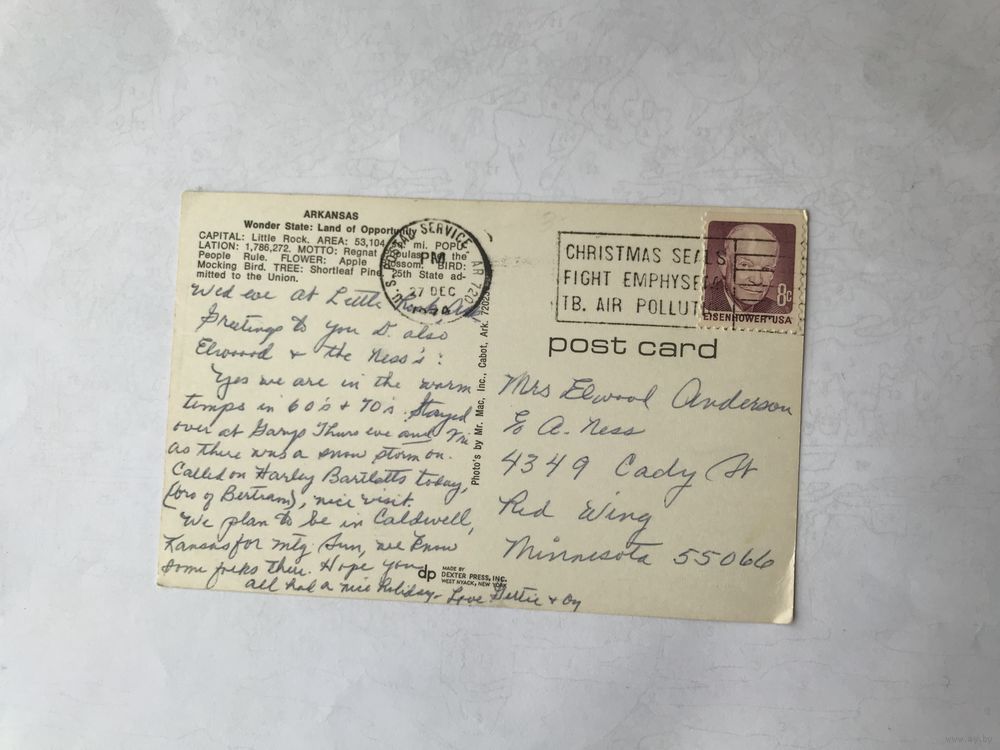 ARKANSAS
Wonder State: Land of Opportunity
CAPITAL: Little Rock. AREA: 53,104 mi. POPU-
LATION: 1,786,272. MOTTO: Regnat Populas the
People Rule. FLOWER: Apple Blossom. BIRD:
Mocking Bird. TREE: Shortleaf Pine. 25th State ad-
mitted to the Union.
U.S. POSTAL SERVICE AR 720
PM
27 DEC
CHRISTMAS SEALS
FIGHT EMPHYSEMA
TB. AIR POLLUT
EISENHOWER·USA
8c
post card
Wed eve at Little Rock, Ark
Greetings to you D. also
Elwood & the Ness's:
Yes we are in the warm
temps in 60's & 70's. Stayed
over at Garys Thurs eve and Fri
as there was a snow storm on.
Called on Harley Bartletts today,
(bro of Bertram), nice visit.
We plan to be in Caldwell,
Kansas for mtg Sun, we know
some folks there. Hope you
all had a nice holiday – Love Gertie & Oy
Photo's by Mr. Mac, Inc., Cabot, Ark. 72023
dp
MADE BY
DEXTER PRESS, INC.
WEST NYACK, NEW YORK
Mrs Elwood Anderson
% A. Ness
4349 Cady St
Red Wing
Minnesota 55066
www.ay.by